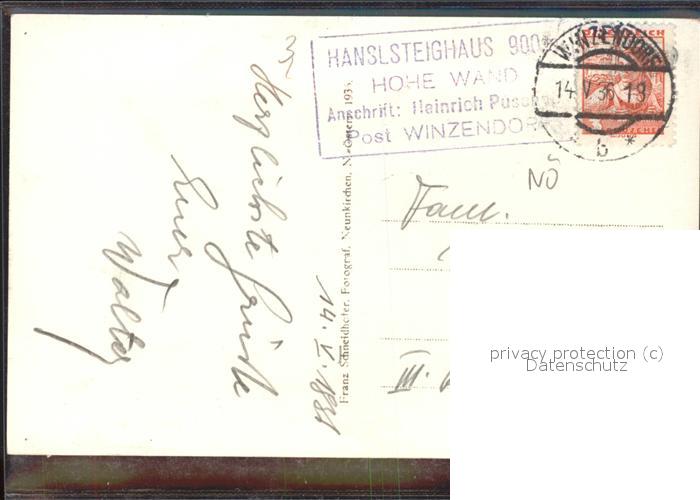 HANSLSTEIGHAUS 900
HOHE WAND
Anschrift: Heinrich
Post WINZENDORF
WINZENDORF
14.V.36.19
b *
NÖ
Herzlichste Grüße
Euer
Walter
14. V.
Franz Schneidhofer, Fotograf, Neunkirchen, N.-Österr. 1935.
Fam.
III.
privacy protection (c)
Datenschutz